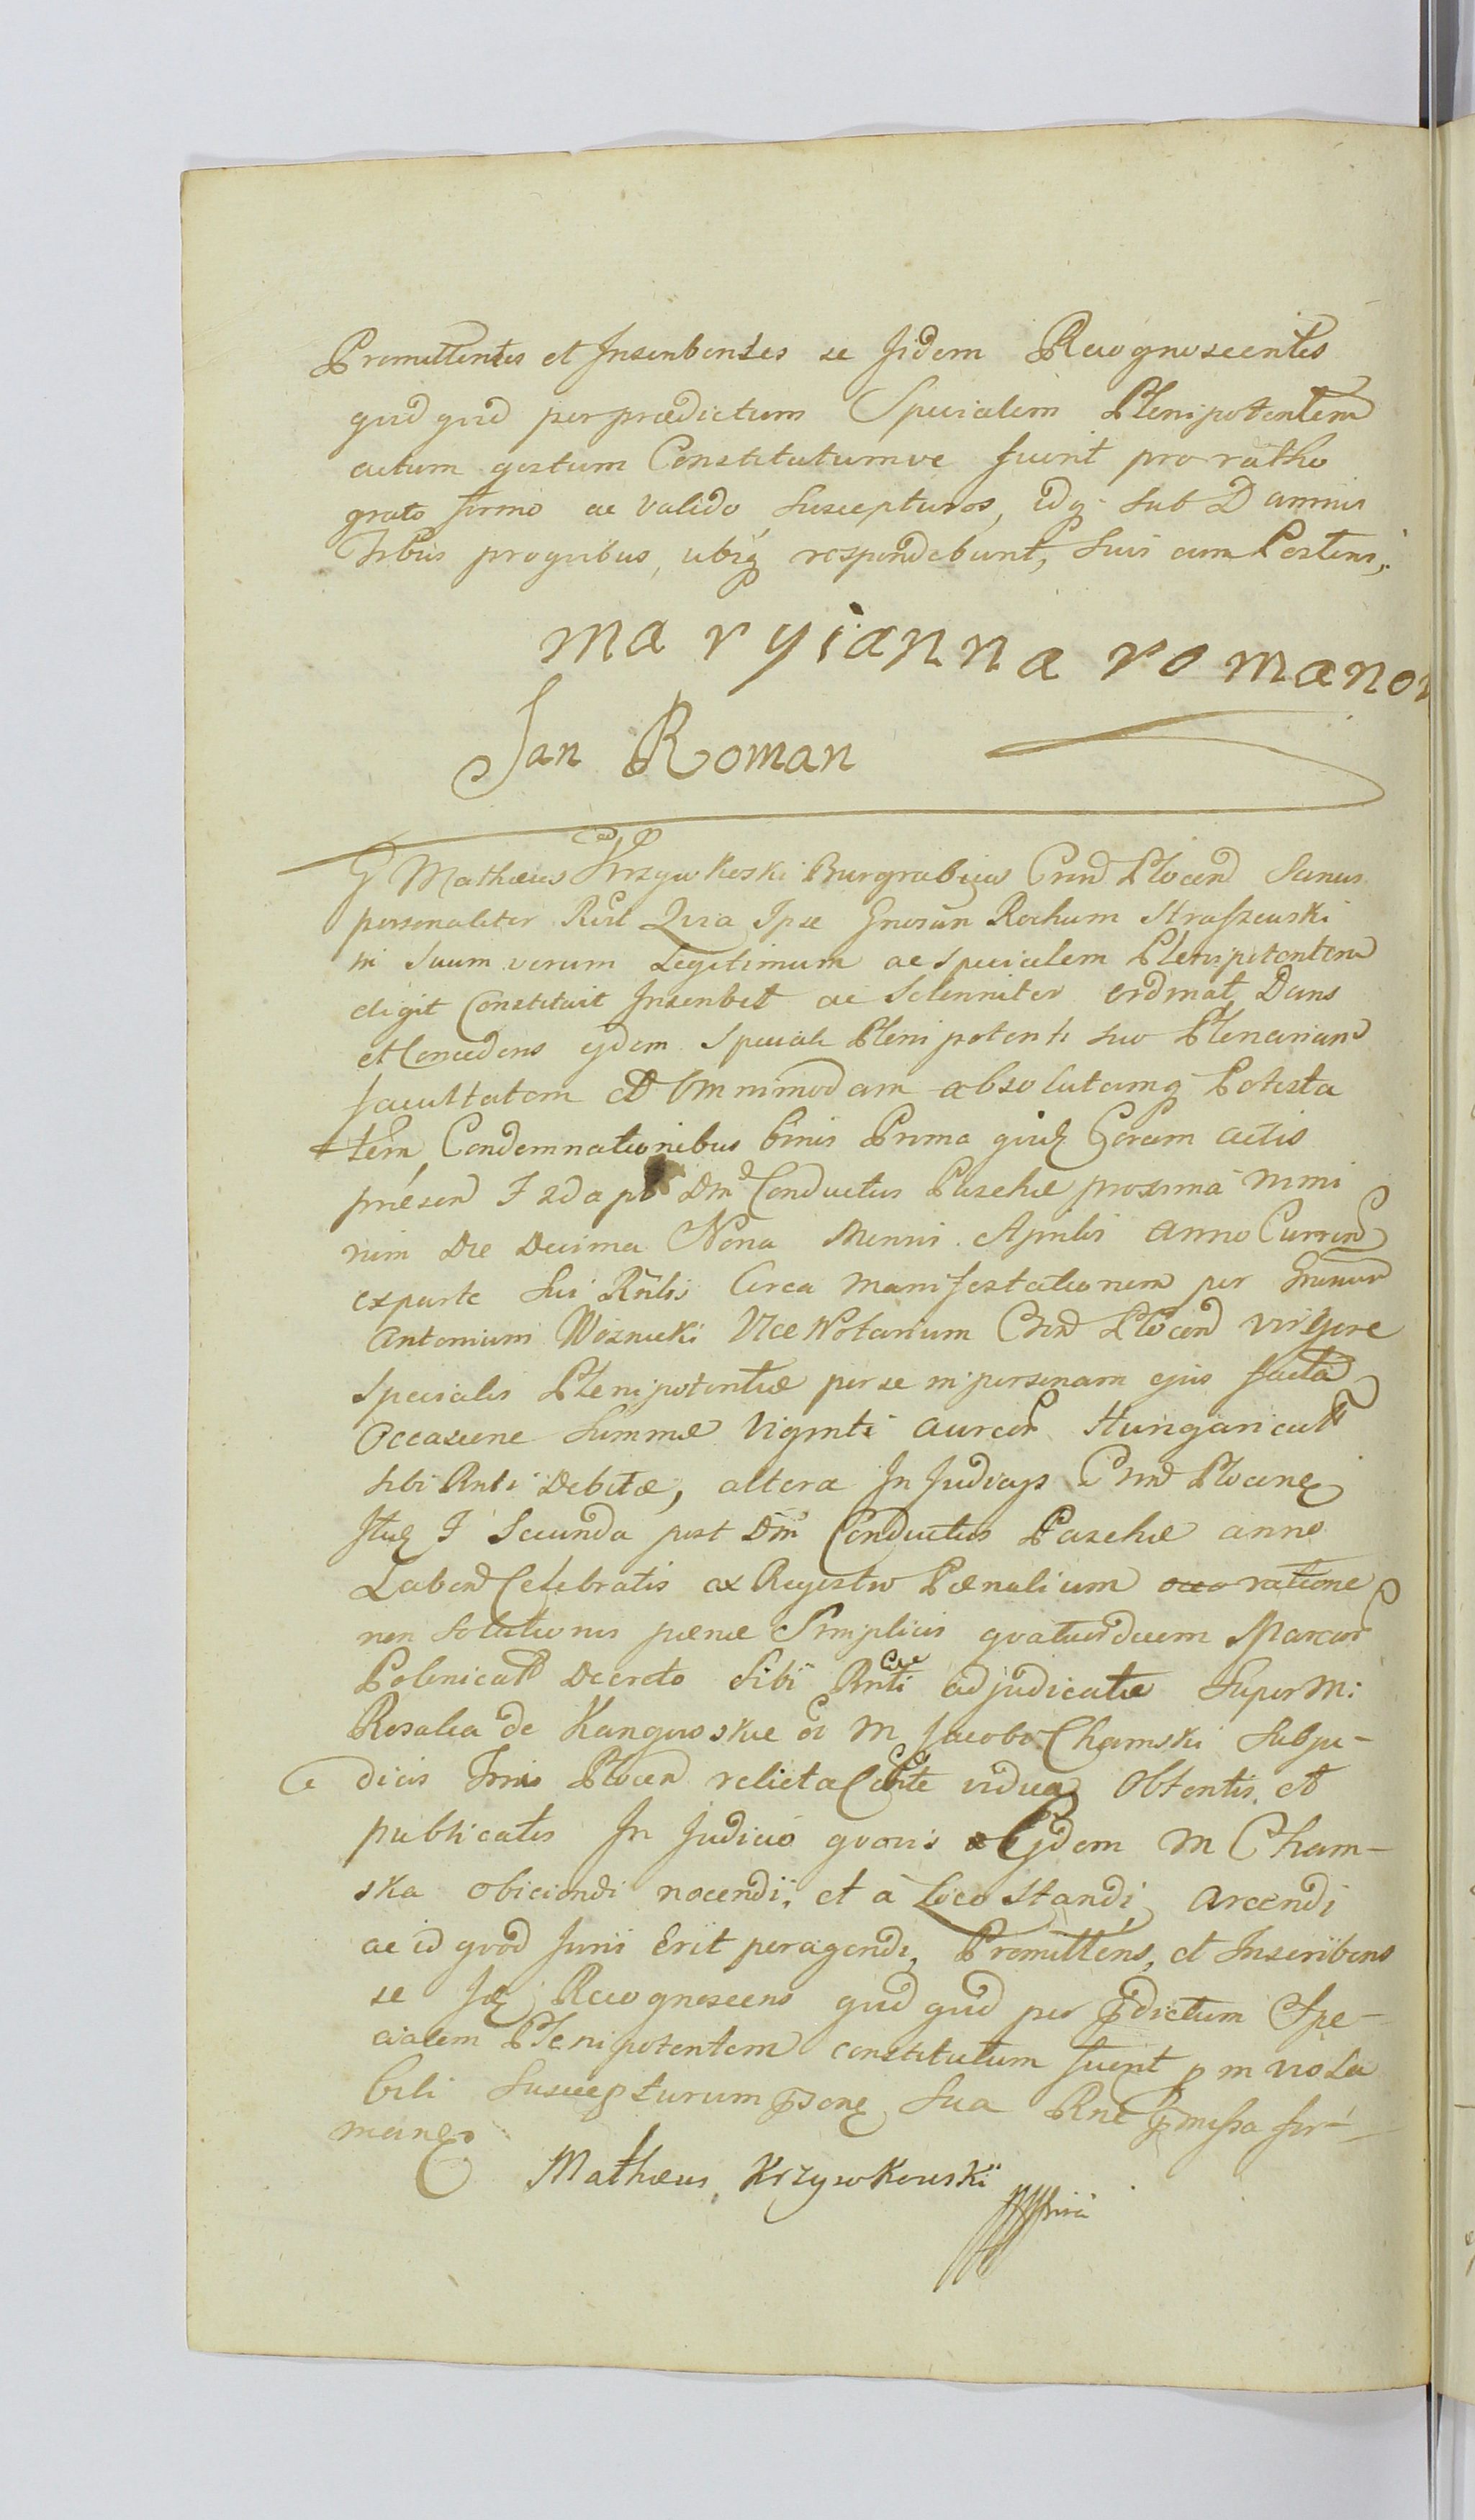 Promittentes et Inscribentes se Iidem Recognoscentes
quid quid per prædictum Specialem Plenipotentem
actum gestum Constitutumve fuerit pro ratho
grato firmo ac valido suscepturos, idq sub Damnis
proquibus, ubiq respondebunt, suis cum Posteris,
maryianna romanow
Jan Roman
G Mathæus Krzywkoski Burgrabius Crnd Plocend Sanus
personaliter Rcrt Quia Ipse Gnosum Rochum Straszewski
in Suum verum Legitimum ac Specialem Plenipotentem
eligit Constituit Inscribit ac Solenniter ordinat Dans
et Concedens ejdem Speciali Plenipotenti suo Plenariam
facultatem et Omnimodam absolutamq Potesta
tem, Condemnationibus binis Prima quid Coram actis
præsend F 2da pt Dm Conductus Paschæ proxima nimi
rum Die Decima Nona Mensis Aprilis anno Currend
exparte sui Rntis Circa Manifestationem per Gnosum
Antonium Woznicki Vice Notarium Crnd Plocend vigore
Specialis Plenipotentiæ per se in personam ejus facta
Occasione Summæ Viginti aureor Hungarical
sibi Rnti Debitæ, altera In Judicijs Crnd Plocens
F Secunda post Dm Conductus Paschæ anno
Labend Celebratis ex Registro Pœnalium occo ratione
non Solutionis pœnæ Simplicis quatuordecem Marcar
Polonical Decreto Sibi Rnti adjudicatæ Super M:
Rosalia de Kangowskie M Jacobi Chamski Subju-
dicis Trris Plocen relicta vidua Obtentis, et
publicatis In Judicio quovis Ejdem M Cham-
ska obiciendi nocendi, et à Loco Standi arcendi
ac id quod Juris Erit peragendi, Promittens, et Inscribens
se Recognoscens quid quid per pdictum Spe-
cialem Plenipotentem constitutum fuerit p in viola
bili Suscepturum psone Sua Rne pmissa fir-
mans
Mathæus, Krzywkowski